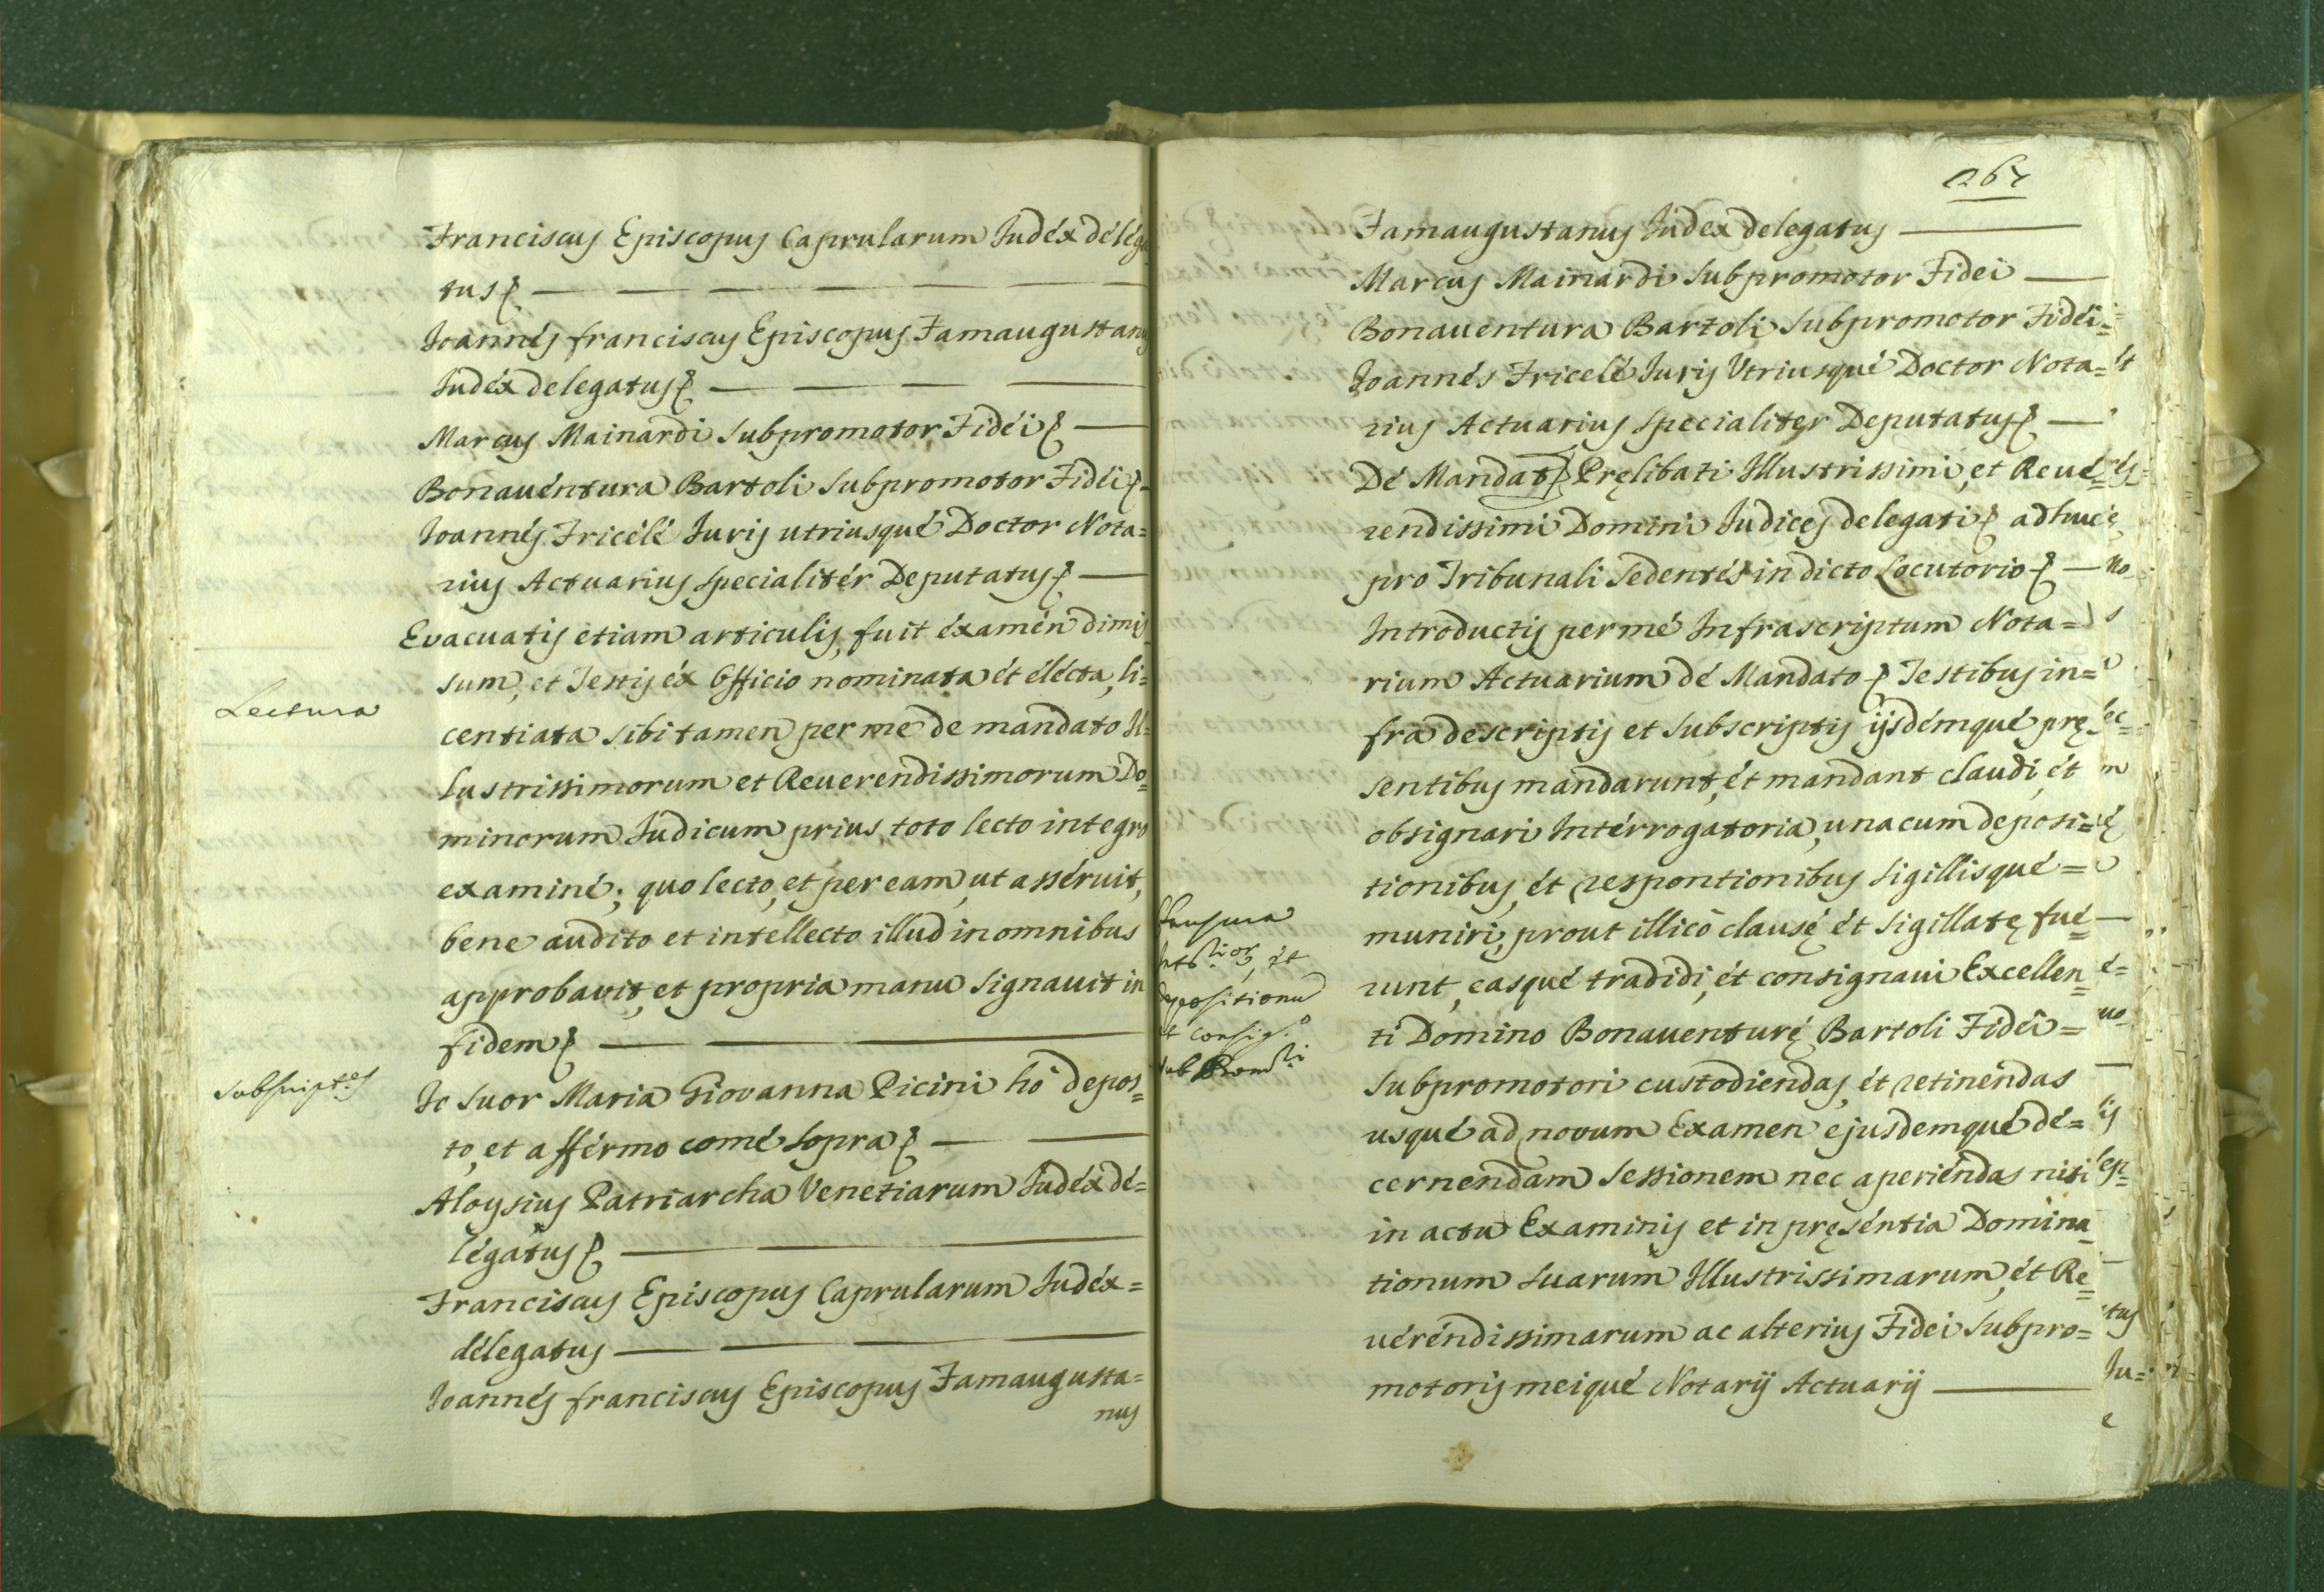 Franciscus Episcopus Caprularum Judéx déléga
tus
Joannés franciscus Episcopus Famaugustanus
Judéx delegatus
Marcus Mainardi Subpromotor Fidéi
Bonauéntura Bartoli Subpromotor Fidéi
Joannés Fricélé Juris utriusqué Doctor Nota=
rius Actuarius specialitér Deputatus
Evacuatis etiam articulis, fuit éxamén dimis
sum, et Testis éx Officio nominata ét élécta, li=
Lectura
centiata sibi tamen per me de mandato Il=
lustrissimorum et Reuerendissimorum Do=
minorum Judicum prius toto lecto integro
examiné; quo lecto, et per eam, ut asséruit,
bene audito et intellecto illud in omnibus
approbavit, et propria manu signauit in
fidem
Subscript.es
Io Suor Maria Giovanna Picini hò depos=
to, et afférmo comé sopra
Aloysius Patriarcha Venetiarum Judéx dé=
légatus
Franciscus Episcopus Caprularum Judéx=
délegatus
Joannés franciscus Episcopus Famaugusta=
nus
267
Famaugustanus Judex delegatus
Marcus Mainardi Subpromotor Fidei
Bonauentura Bartoli Subpromotor Fidéi=
Joannés Fricelé Juris Utriusqué Doctor Nota=
rius Actuarius specialiter Deputatus
Dé Mandat Prelibati Illustrissimi, et Reue=
rendissimi Domini Judices delegati adhuc
pro Tribunali Sedentés in dicto Locutorio
Introductis per mé Infrascriptum Nota=
rium Actuarium dé Mandato Testibus in=
fra descriptis et subscriptis ijsdémqué pre
sentibus mandarunt, ét mandant claudi, ét
obsignari Intérrogatoria, una cum deposi=
tionibus, ét respontionibus sigillisqué=
muniri, prout illicò clause ét sigillate fué=
et
depositionu
runt, easqué tradidi, ét consignaui Excellen=
ti Domino Bonauenture Bartoli Fidei=
Subpromotori custodiendas, ét retinéndas
usqué ad novum Examen ejusdemqué dé=
cernendam Sessionem nec aperiéndas nisi
in actu Examinis et in preséntia Domina
tionum Suarum Illustrissimarum, ét Re=
uéréndissimarum ac alterius Fidei Subpro=
motoris meiqué Notarij Actuarij